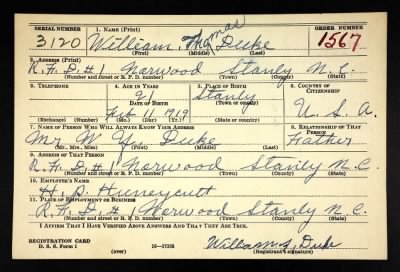 SERIAL NUMBER 1. NAME (Print) ORDER NUMBER
3120 William Thomas Duke 1567
(First) (Middle) (Last)
2. ADDRESS (Print)
R.F.D. #1 Norwood Stanly N.C.
(Number and street or R. F. D. number) (Town) (County) (State)
3. TELEPHONE 4. AGE IN YEARS 5. PLACE OF BIRTH 6. COUNTRY OF CITIZENSHIP
21 Stanly
DATE OF BIRTH (Town or county)
Feb 1919 N.C. U.S.A.
(Exchange) (No.) (Mo.) (Day) (Yr.) (State or country)
7. NAME OF PERSON WHO WILL ALWAYS KNOW YOUR ADDRESS 8. RELATIONSHIP OF THAT PERSON
Mr. W. Duke Father
(Mr., Mrs., Miss) (First) (Middle) (Last)
9. ADDRESS OF THAT PERSON
R.F.D. #1 Norwood Stanly N.C.
(Number and street or R. F. D. number) (Town) (County) (State)
10. EMPLOYER'S NAME
Huneycutt
11. PLACE OF EMPLOYMENT OR BUSINESS
R.F.D. #1 Norwood Stanly N.C.
(Number and street or R. F. D. number) (Town) (County) (State)
I AFFIRM THAT I HAVE VERIFIED ABOVE ANSWERS AND THAT THEY ARE TRUE.
REGISTRATION CARD
D. S. S. Form 1 (over) William Duke
(Registrant's signature)